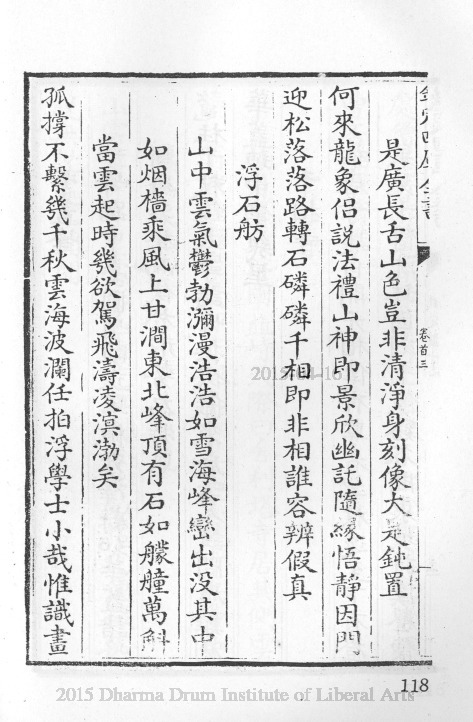 欽定四庫全書
卷首三
是廣長舌山色豈非清淨身刻像大是鈍置
何來龍象侶説法禮山神即景欣幽託隨緣悟靜因門
迎松落落路轉石磷磷千相即非相誰容辨假真
浮石舫
山中雲氣鬱勃瀰漫浩浩如雪海峰巒出没其中
如烟檣乘風上甘澗東北峰頂有石如艨艟萬斛
當雲起時幾欲駕飛濤凌溟渤矣
孤撐不繫幾千秋雲海波瀾任拍浮學士小哉惟識畫
118
2015 Dharma Drum Institute of Liberal Arts